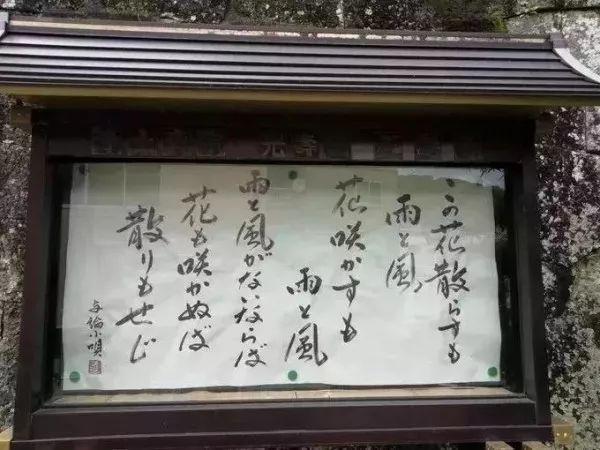 この花散らすも
雨と風
花咲かすも
雨と風
雨と風がないならば
花も咲かぬば
散りもせじ